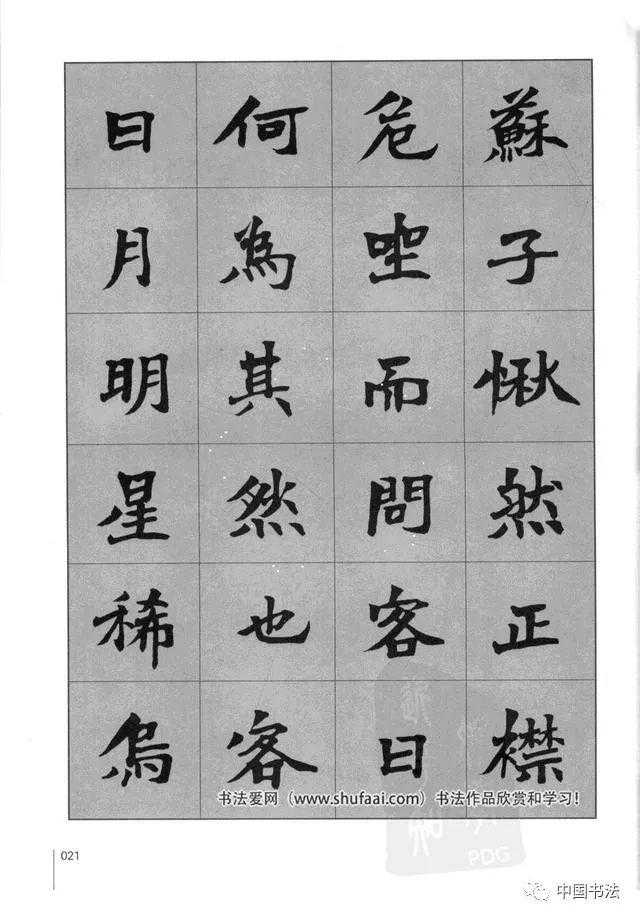 蘇子愀然正襟
危坐而問客曰
何為其然也客
曰月明星稀烏
书法爱网（www.shufaai.com）书法作品欣赏和学习！
PDG
021
中国书法